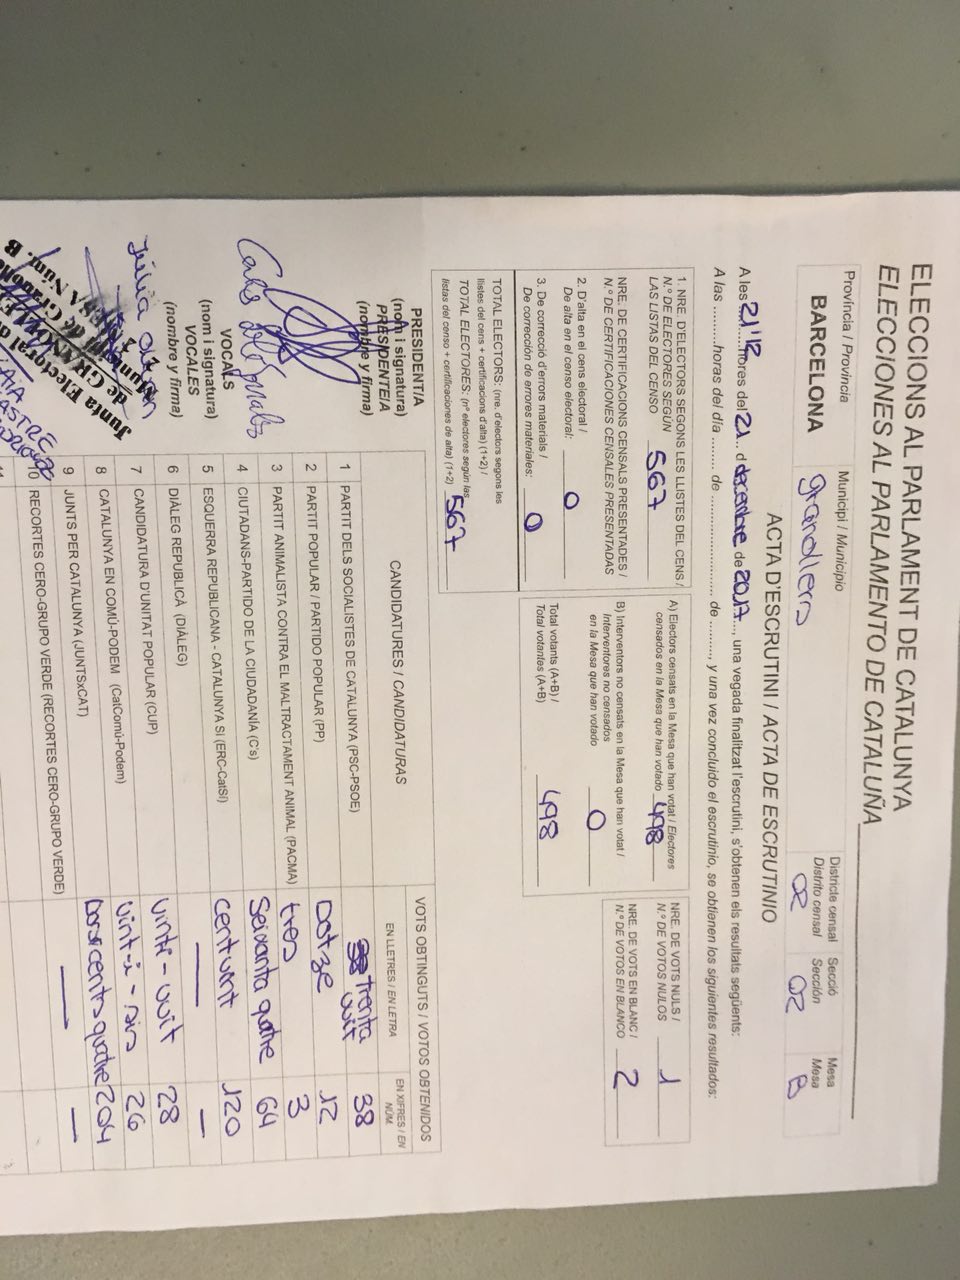 ELECCIONS AL PARLAMENT DE CATALUNYA
ELECCIONES AL PARLAMENTO DE CATALUÑA
Província / Provincia
BARCELONA
Municipi / Municipio
granollers
Districte censal
Distrito censal
02
Secció
Sección
02
Mesa
Mesa
B
ACTA D'ESCRUTINI / ACTA DE ESCRUTINIO
A les 21'12 hores del 21 d desembre de 2017, una vegada finalitzat l'escrutini, s'obtenen els resultats següents:
A las ........... horas del día ......... de ........................ de ........., y una vez concluido el escrutinio, se obtienen los siguientes resultados:
1. NRE. D'ELECTORS SEGONS LES LLISTES DEL CENS /
N.º DE ELECTORES SEGÚN
LAS LISTAS DEL CENSO 567
NRE. DE CERTIFICACIONS CENSALS PRESENTADES /
N.º DE CERTIFICACIONES CENSALES PRESENTADAS
2. D'alta en el cens electoral /
De alta en el censo electoral: 0
3. De correcció d'errors materials /
De corrección de errores materiales: 0
TOTAL ELECTORS: (nre. d'electors segons les
llistes del cens + certificacions d'alta) (1+2) /
TOTAL ELECTORES: (nº electores según las
listas del censo + certificaciones de alta) (1+2) 567
A) Electors censats en la Mesa que han votat / Electores
censados en la Mesa que han votado 498
B) Interventors no censats en la Mesa que han votat /
Interventores no censados
en la Mesa que han votado 0
Total votants (A+B) /
Total votantes (A+B) 498
NRE. DE VOTS NULS /
N.º DE VOTOS NULOS 1
NRE. DE VOTS EN BLANC /
N.º DE VOTOS EN BLANCO 2
PRESIDENT/A
(nom i signatura)
PRESIDENTE/A
(nombre y firma)
VOCALS
(nom i signatura)
VOCALES
(nombre y firma)
Júlia
Junta Electoral de
CANDIDATURES / CANDIDATURAS
VOTS OBTINGUTS / VOTOS OBTENIDOS
EN LLETRES / EN LETRA
EN XIFRES / EN NÚM.
1 PARTIT DELS SOCIALISTES DE CATALUNYA (PSC-PSOE) trenta vuit 38
2 PARTIT POPULAR / PARTIDO POPULAR (PP) Dotze 12
3 PARTIT ANIMALISTA CONTRA EL MALTRACTAMENT ANIMAL (PACMA) tres 3
4 CIUTADANS-PARTIDO DE LA CIUDADANÍA (C's) Seixanta quatre 64
5 ESQUERRA REPUBLICANA - CATALUNYA SI (ERC-CatSí) cent vint 120
6 DIÀLEG REPUBLICÀ (DIÀLEG) —
7 CANDIDATURA D'UNITAT POPULAR (CUP) vint-i-vuit 28
8 CATALUNYA EN COMÚ-PODEM (CatComú-Podem) vint-i-sis 26
9 JUNTS PER CATALUNYA (JUNTSxCAT) Dos cents quatre 204
10 RECORTES CERO-GRUPO VERDE (RECORTES CERO-GRUPO VERDE) —
11